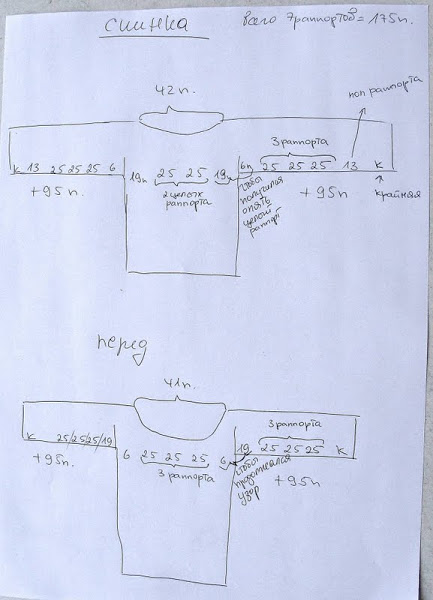 спинка
всего 7 раппортов = 175п.
42п.
пол раппорта
3 раппорта
к 13 25 25 25 6
19п 25 25 19
6п 25 25 25 13 к
+95п
2 целых
раппорта
чтобы
получился
опять
целый
раппорт
+95п
крайняя
перед
41п.
3 раппорта
к 25/25/25/19
6 25 25 25 6
19 25 25 25 к
+95п.
3 раппорта
чтобы
продолжался
узор
+95п